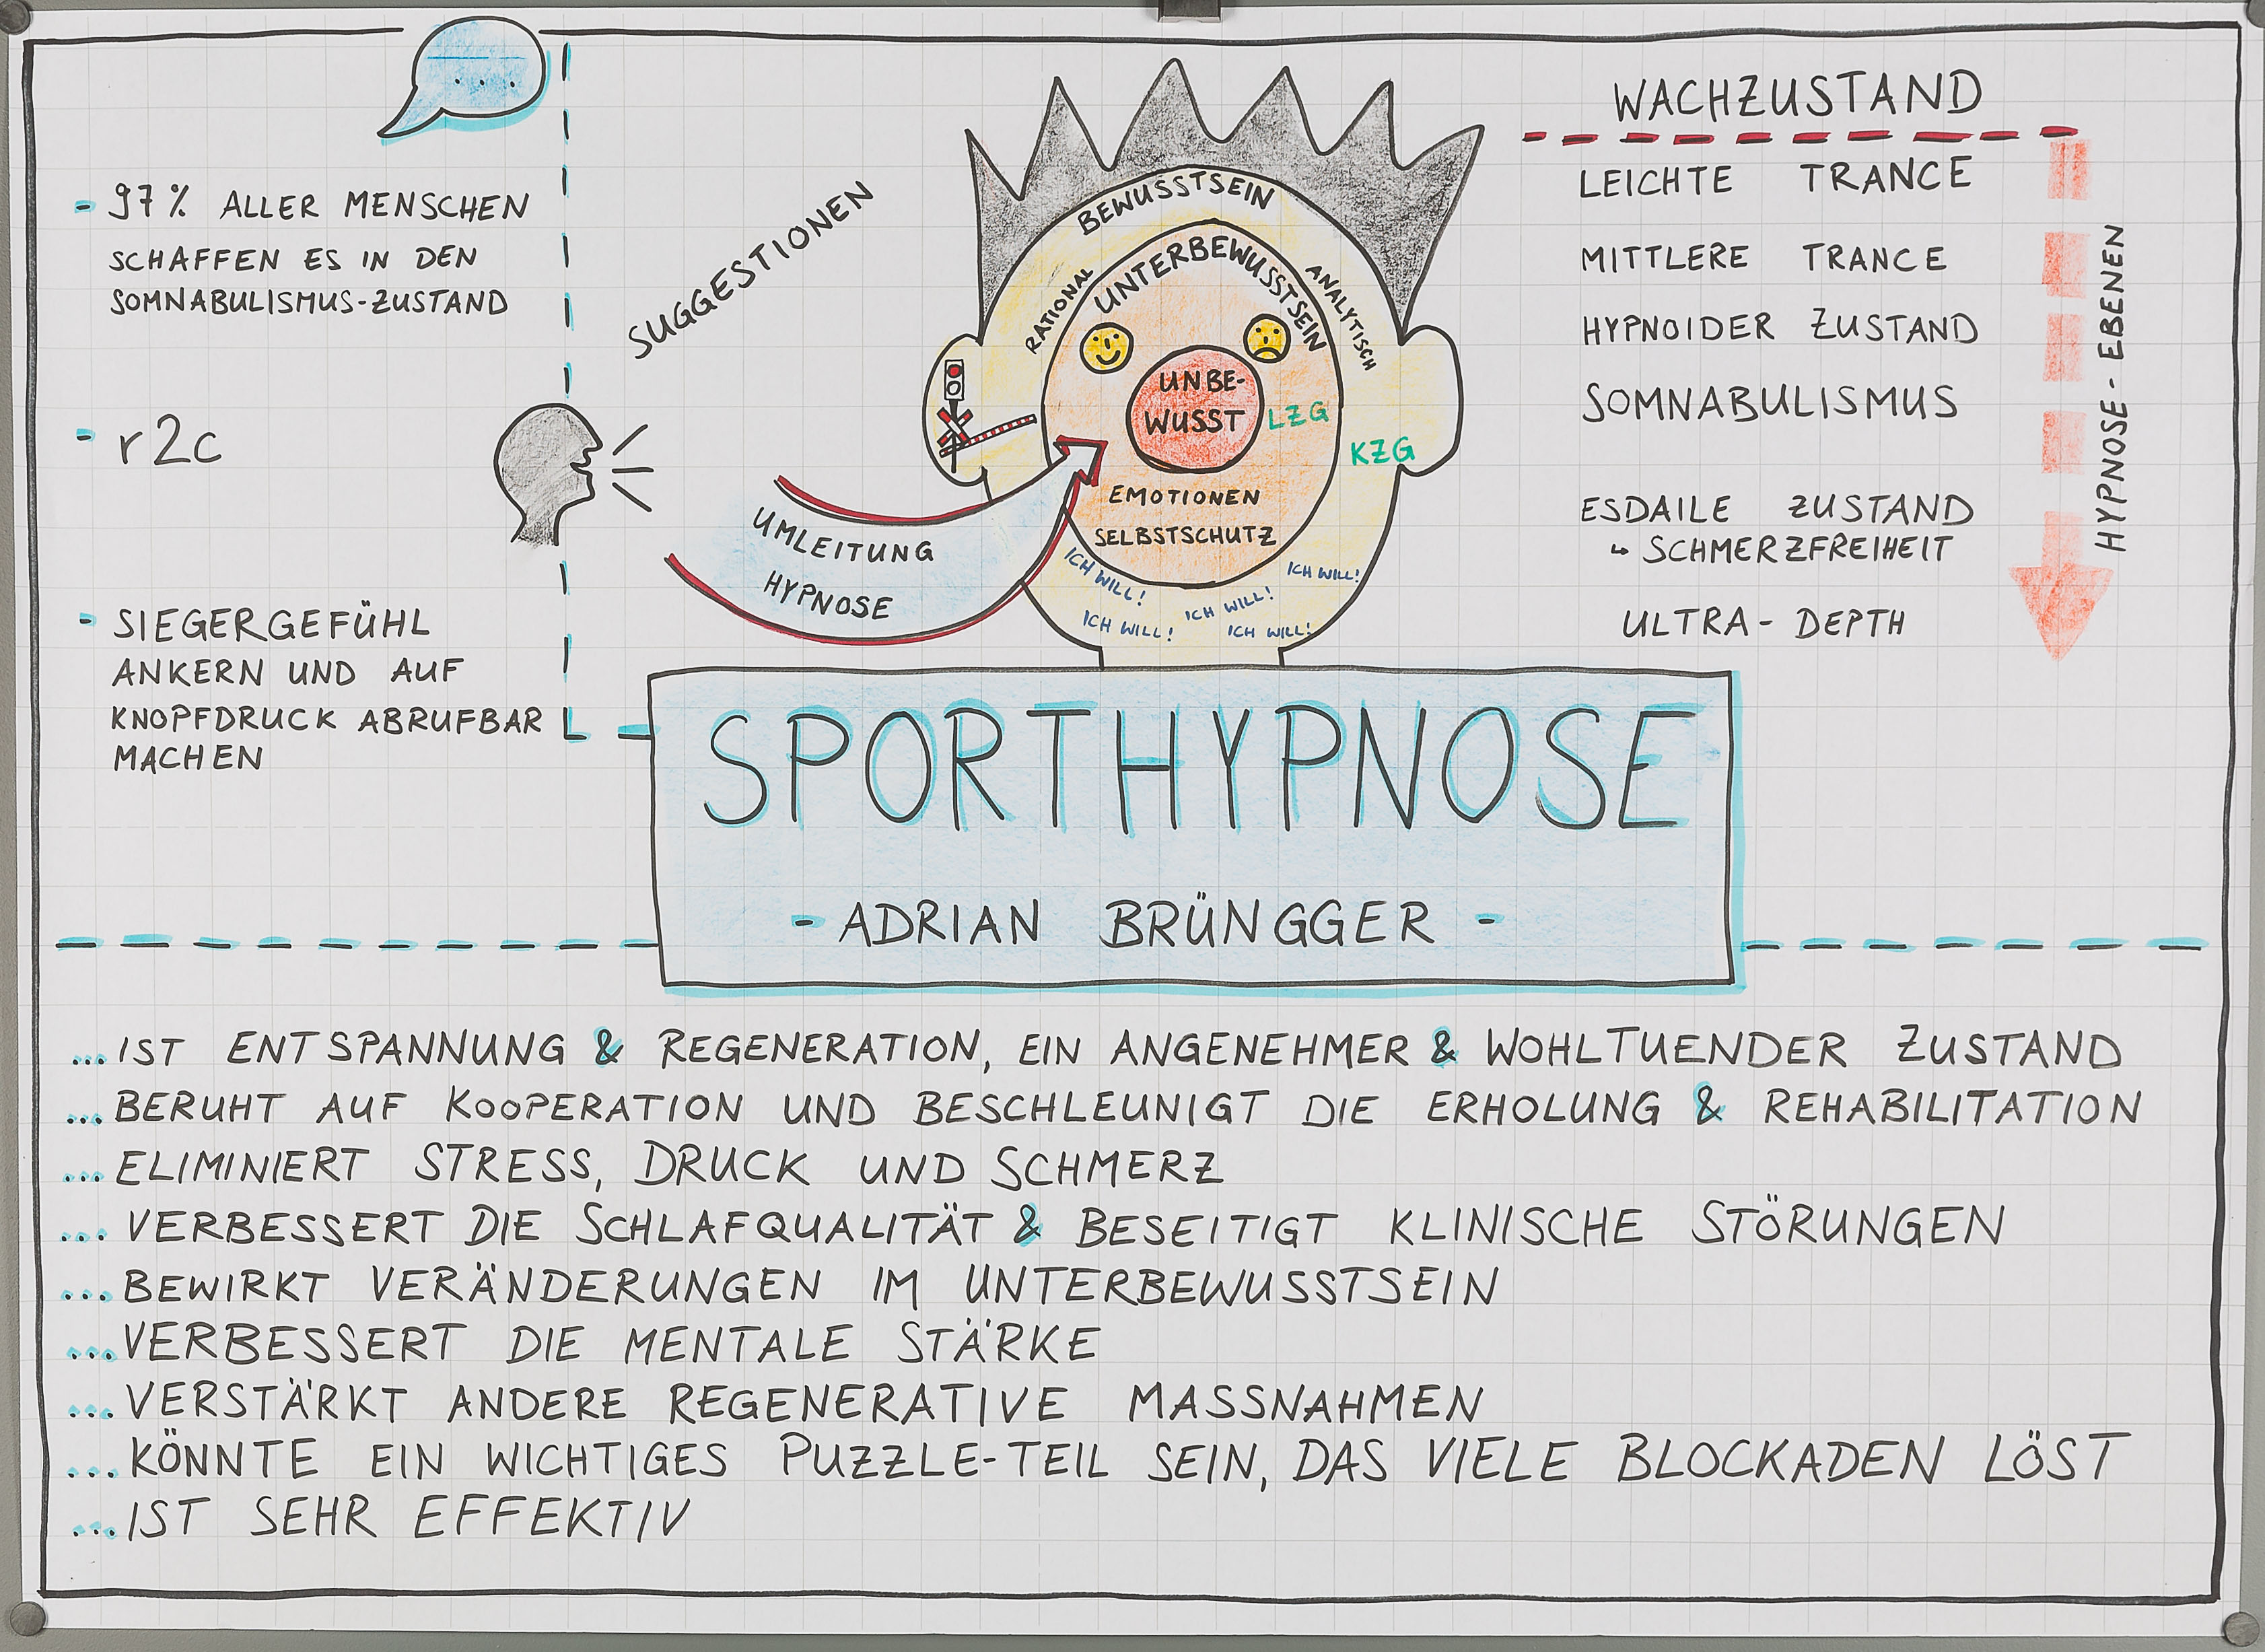 ....
- 97% ALLER MENSCHEN
SCHAFFEN ES IN DEN
SOMNABULISMUS-ZUSTAND
- r2c
- SIEGERGEFÜHL
ANKERN UND AUF
KNOPFDRUCK ABRUFBAR
MACHEN
SUGGESTIONEN
UMLEITUNG
HYPNOSE
BEWUSSTSEIN
RATIONAL
ANALYTISCH
UNTERBEWUSSTSEIN
UNBE-
WUSST
LZG
KZG
EMOTIONEN
SELBSTSCHUTZ
ICH WILL!
ICH WILL!
ICH WILL!
ICH WILL!
ICH WILL!
WACHZUSTAND
LEICHTE TRANCE
MITTLERE TRANCE
HYPNOIDER ZUSTAND
SOMNABULISMUS
ESDAILE ZUSTAND
↳ SCHMERZFREIHEIT
ULTRA-DEPTH
HYPNOSE-EBENEN
SPORTHYPNOSE
- ADRIAN BRÜNGGER -
...IST ENTSPANNUNG & REGENERATION, EIN ANGENEHMER & WOHLTUENDER ZUSTAND
...BERUHT AUF KOOPERATION UND BESCHLEUNIGT DIE ERHOLUNG & REHABILITATION
...ELIMINIERT STRESS, DRUCK UND SCHMERZ
...VERBESSERT DIE SCHLAFQUALITÄT & BESEITIGT KLINISCHE STÖRUNGEN
...BEWIRKT VERÄNDERUNGEN IM UNTERBEWUSSTSEIN
...VERBESSERT DIE MENTALE STÄRKE
...VERSTÄRKT ANDERE REGENERATIVE MASSNAHMEN
...KÖNNTE EIN WICHTIGES PUZZLE-TEIL SEIN, DAS VIELE BLOCKADEN LÖST
...IST SEHR EFFEKTIV